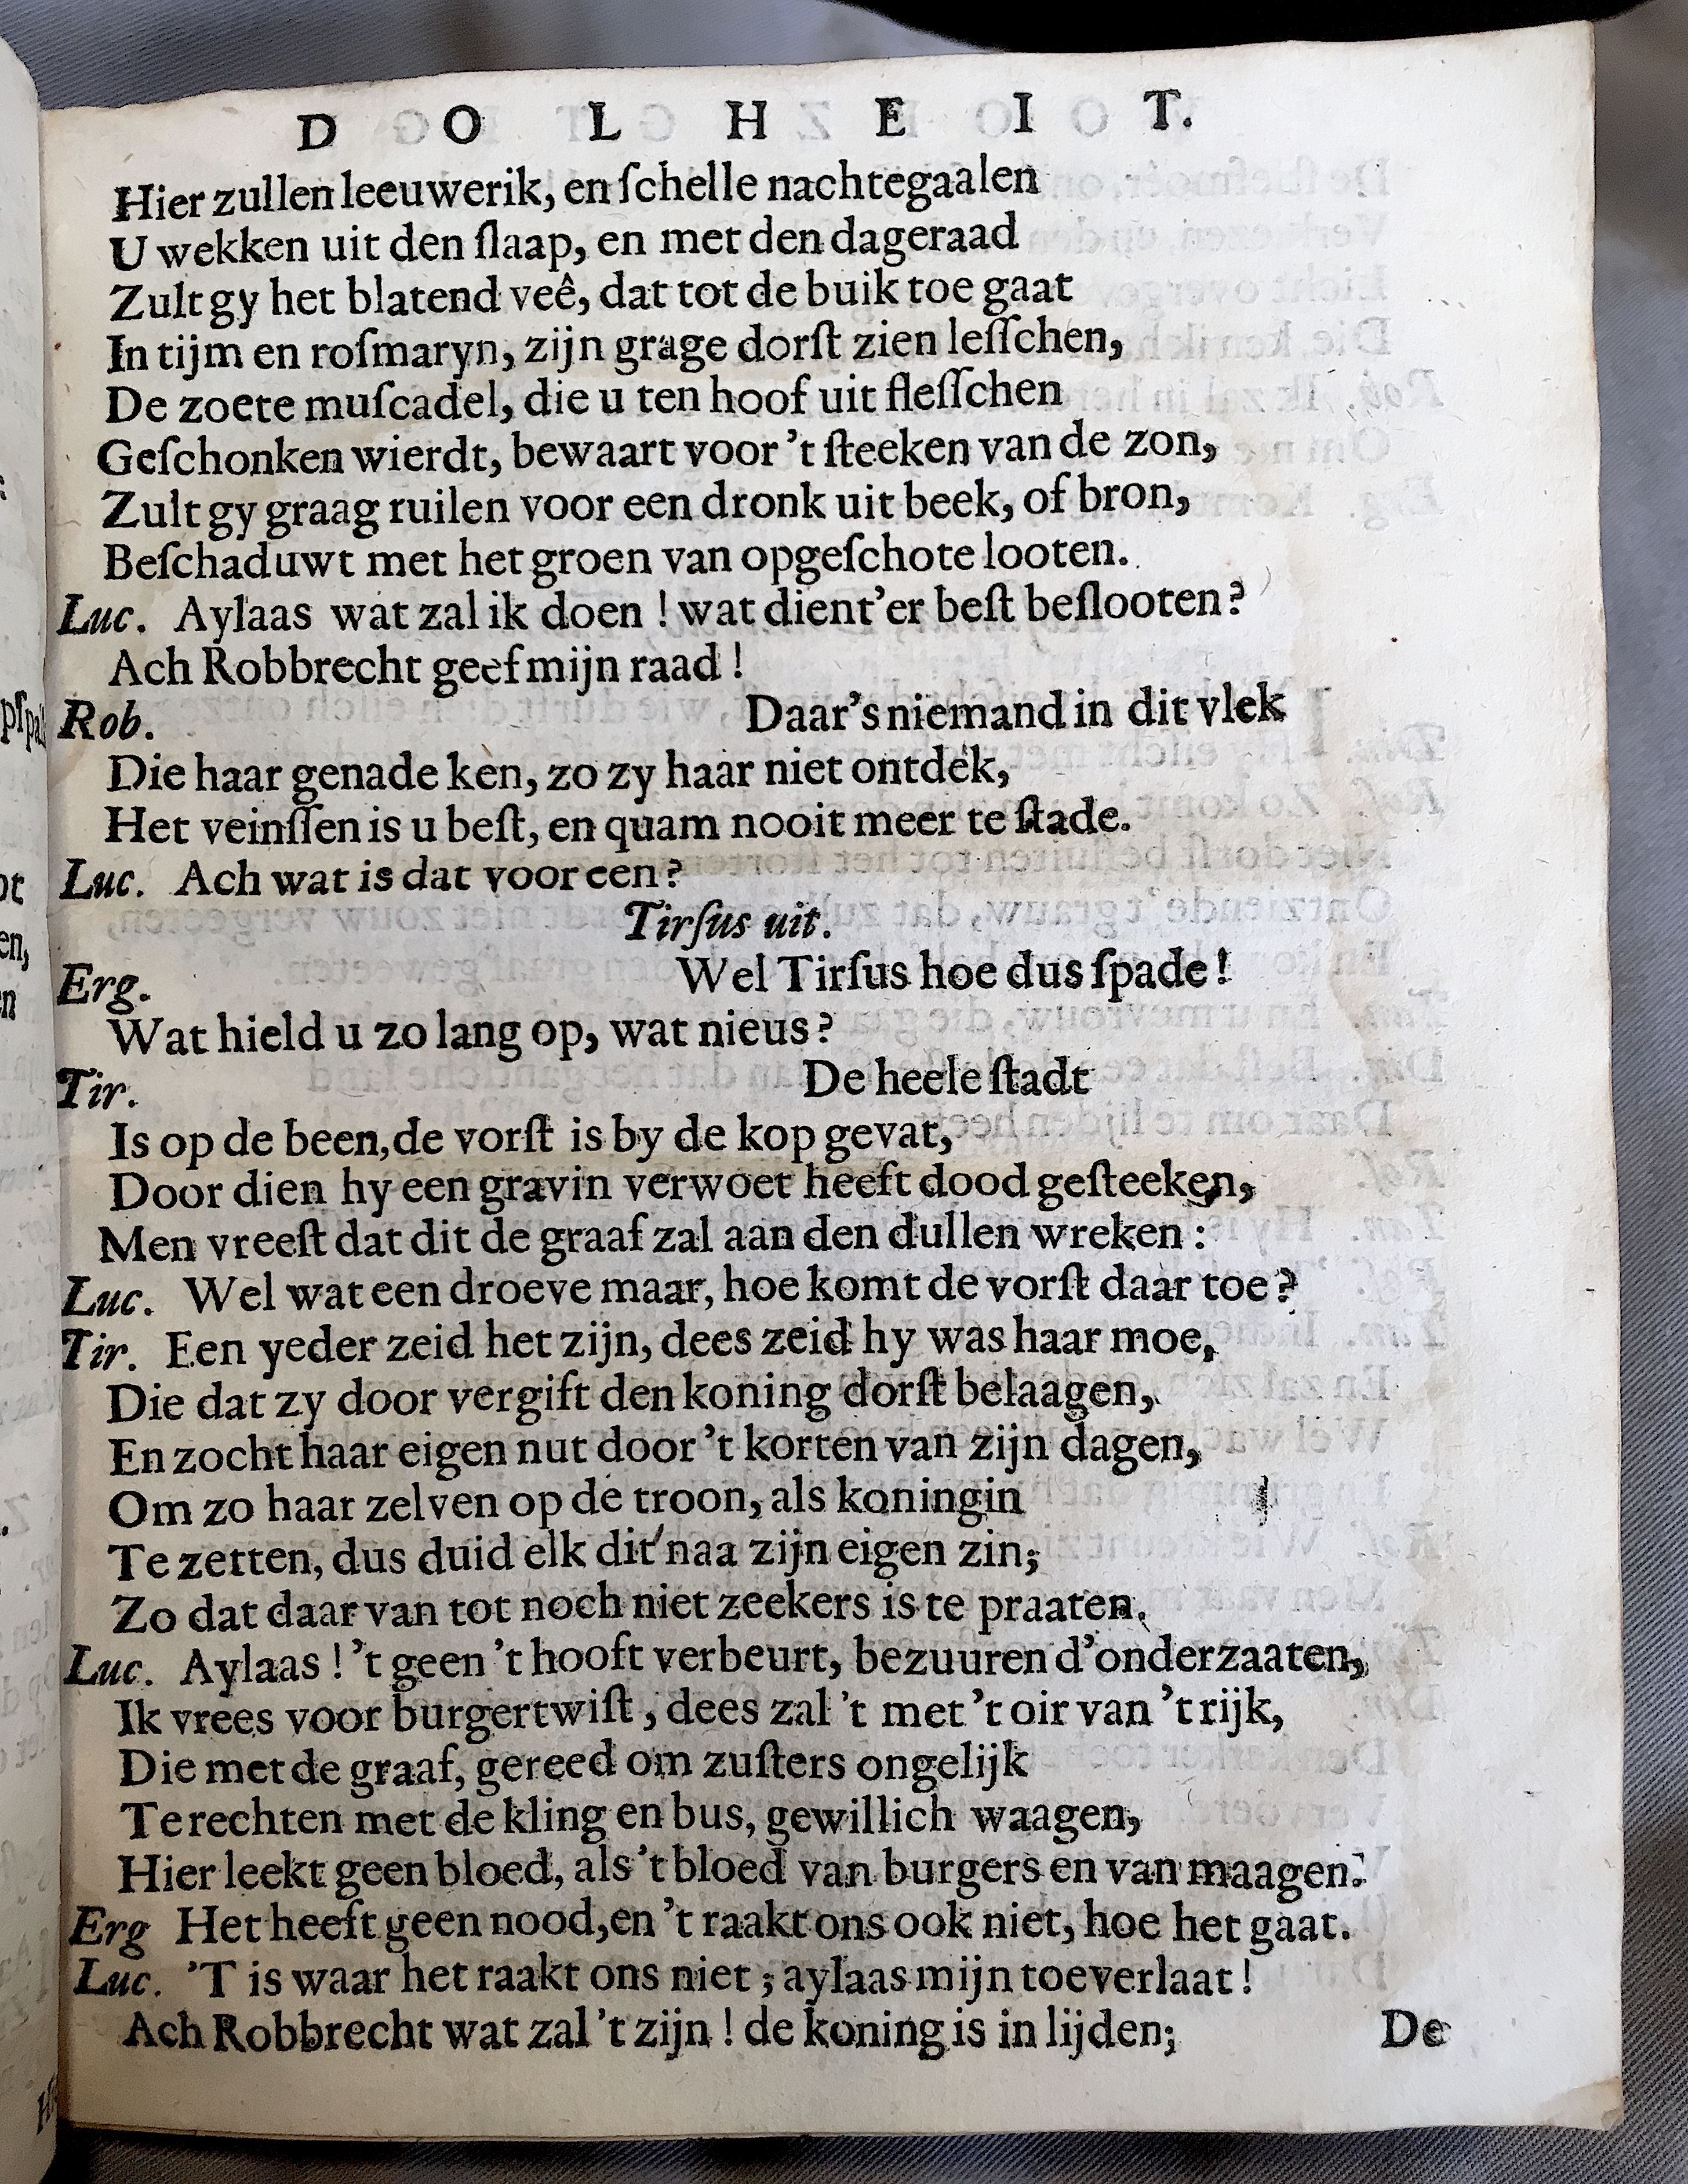 D O L H E I T.
Hier zullen leeuwerik, en ſchelle nachtegaalen
U wekken uit den ſlaap, en met den dageraad
Zult gy het blatend veê, dat tot de buik toe gaat
In tijm en roſmaryn, zijn grage dorſt zien leſſchen,
De zoete muſcadel, die u ten hoof uit fleſſchen
Geſchonken wierdt, bewaart voor 't ſteeken van de zon,
Zult gy graag ruilen voor een dronk uit beek, of bron,
Beſchaduwt met het groen van opgeſchote looten.
Luc. Aylaas wat zal ik doen ! wat dient'er beſt beſlooten?
Ach Robbrecht geef mijn raad !
Rob. Daar's niemand in dit vlek
Die haar genade ken, zo zy haar niet ontdek,
Het veinſſen is u beſt, en quam nooit meer te ſtade.
Luc. Ach wat is dat voor een?
Tirſus uit.
Erg. Wel Tirſus hoe dus ſpade!
Wat hield u zo lang op, wat nieus?
Tir. De heele ſtadt
Is op de been, de vorſt is by de kop gevat,
Door dien hy een gravin verwoet heeft dood geſteeken,
Men vreeſt dat dit de graaf zal aan den dullen wreken :
Luc. Wel wat een droeve maar, hoe komt de vorſt daar toe?
Tir. Een yeder zeid het zijn, dees zeid hy was haar moe,
Die dat zy door vergift den koning dorſt belaagen,
En zocht haar eigen nut door 't korten van zijn dagen,
Om zo haar zelven op de troon, als koningin
Te zetten, dus duid elk dit naa zijn eigen zin;
Zo dat daar van tot noch niet zeekers is te praaten.
Luc. Aylaas ! 't geen 't hooft verbeurt, bezuuren d'onderzaaten,
Ik vrees voor burgertwiſt, dees zal 't met 't oir van 't rijk,
Die met de graaf, gereed om zuſters ongelijk
Te rechten met de kling en bus, gewillich waagen,
Hier leekt geen bloed, als 't bloed van burgers en van maagen.
Erg Het heeft geen nood, en 't raakt ons ook niet, hoe het gaat.
Luc. 'T is waar het raakt ons niet ; aylaas mijn toeverlaat !
Ach Robbrecht wat zal 't zijn ! de koning is in lijden;
De